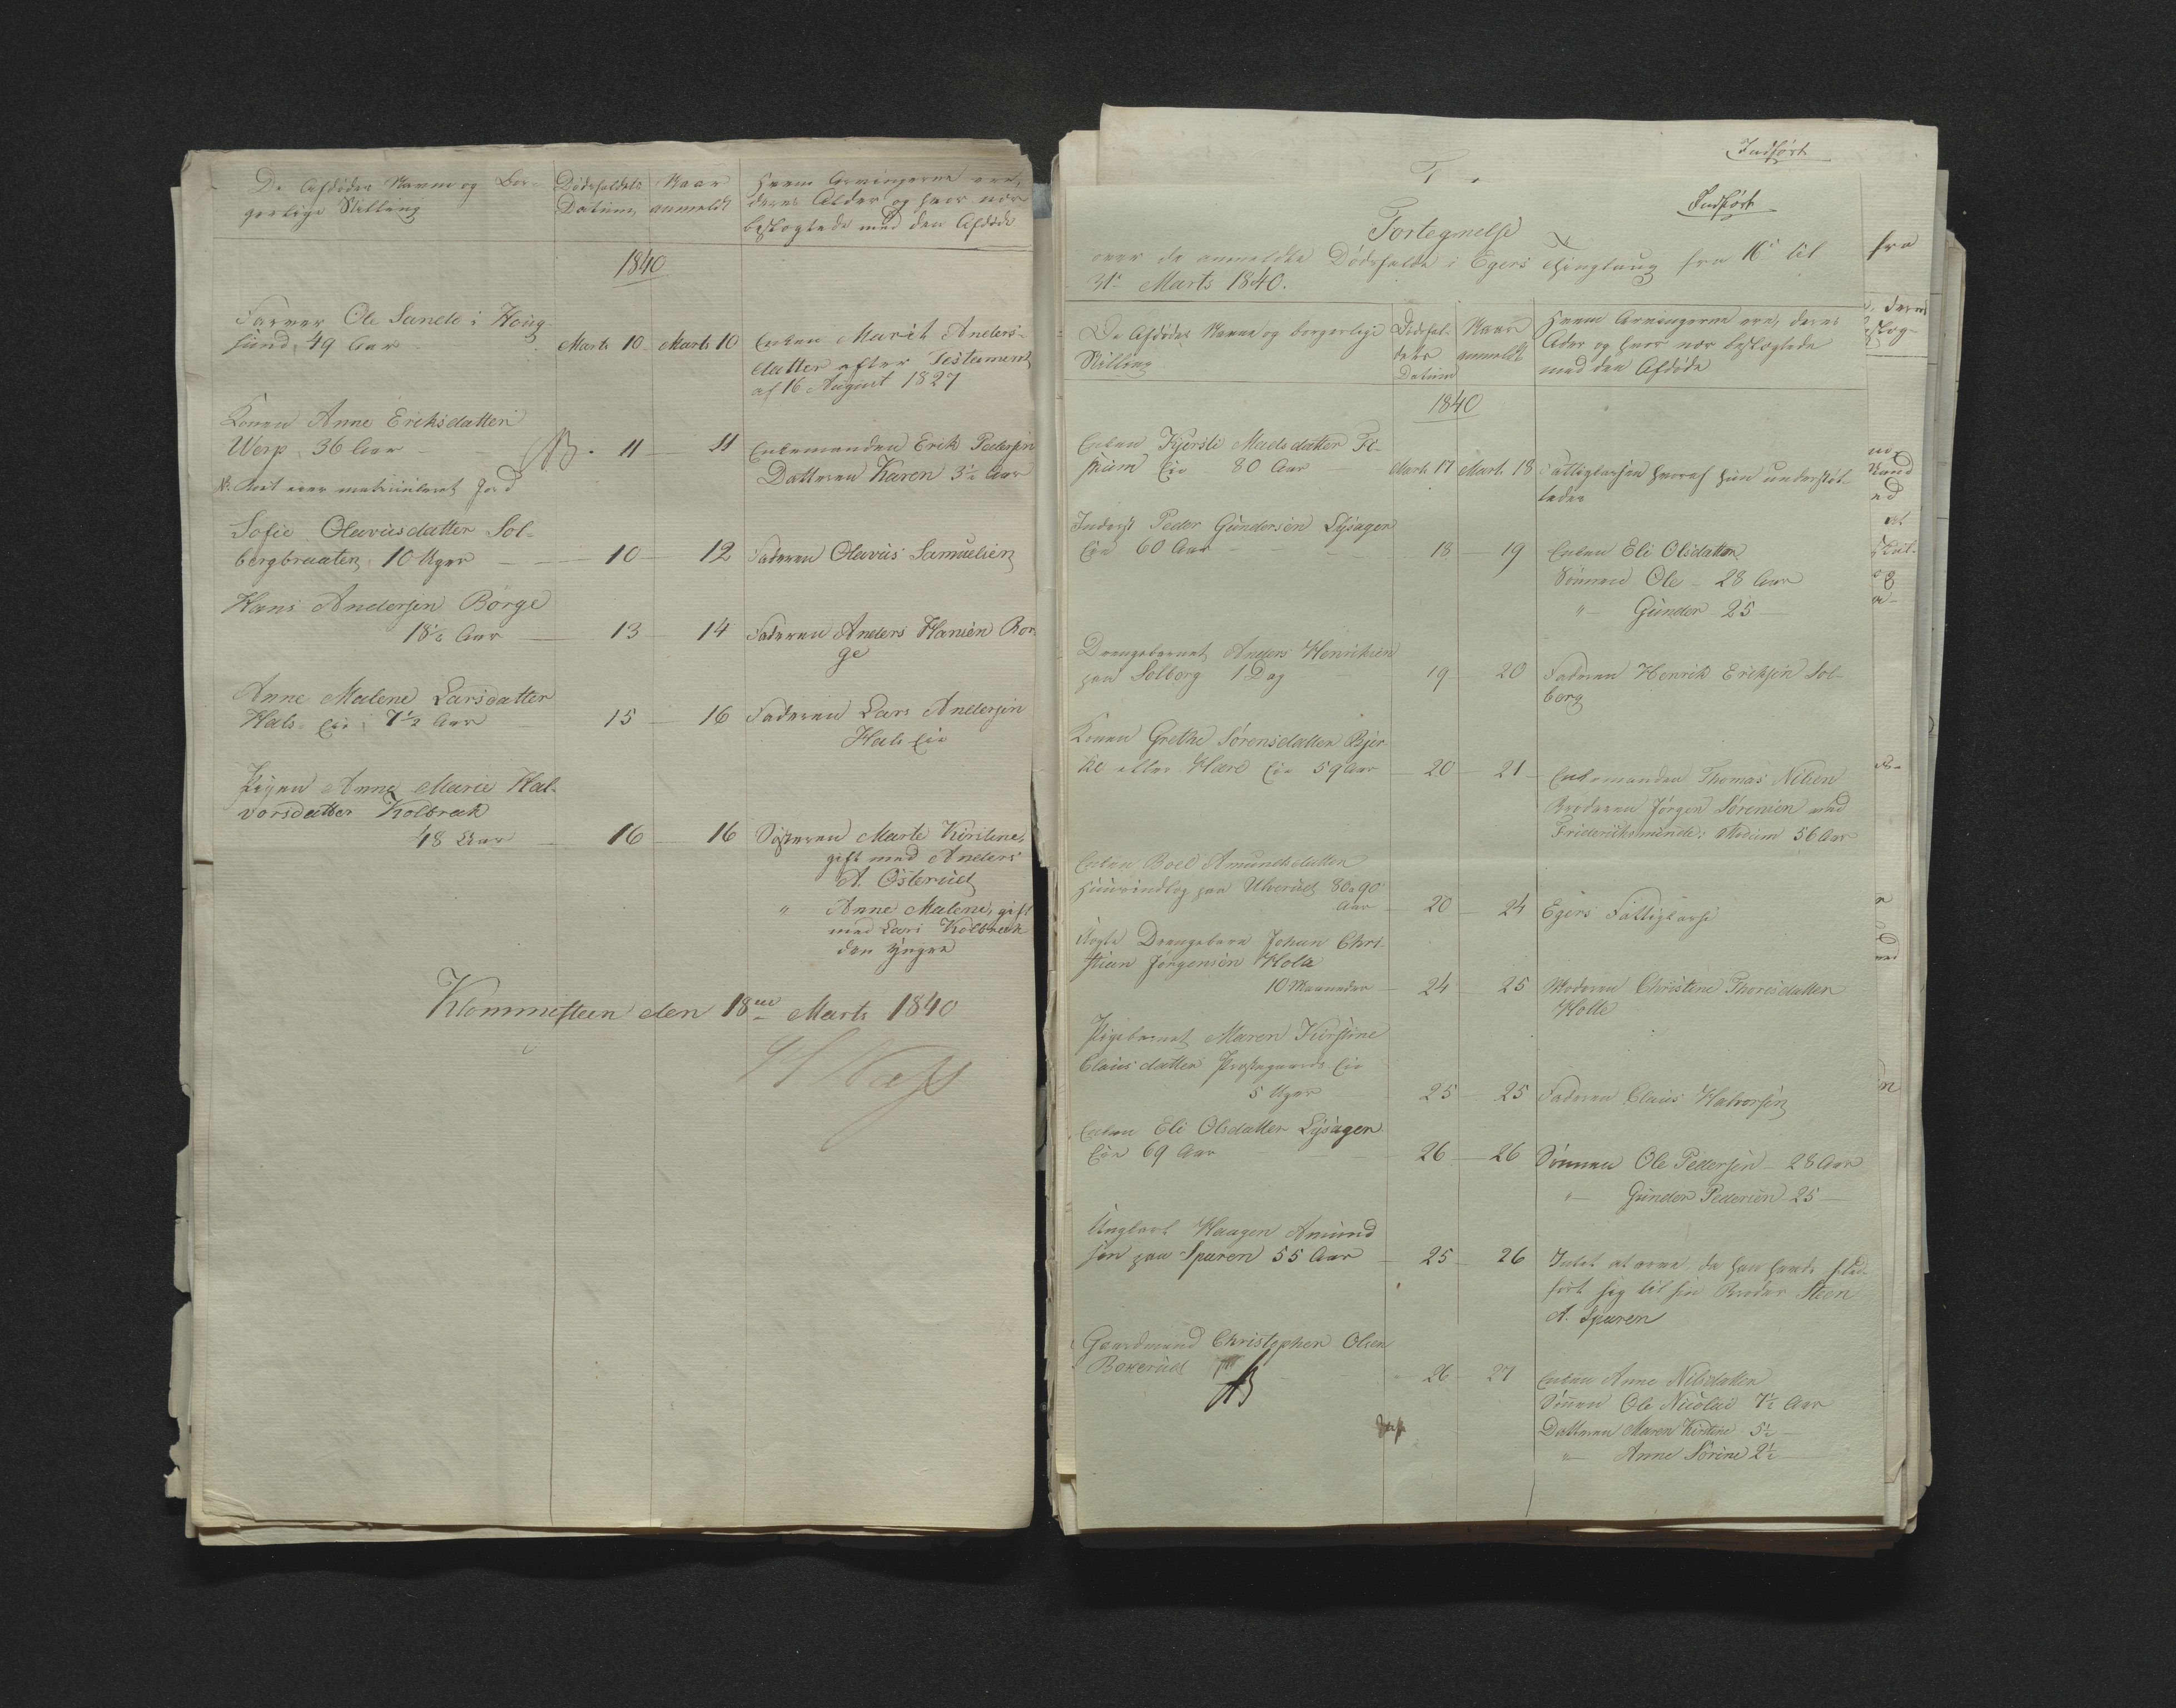 De Afdødes Navne og Bor-
gerlige Stilling
Dødsfaldets
Datum
Naar
anmeldt
Hvem Arvingerne ere,
deres Alder og hvor nær
beslægtede med den Afdøde
1840
Farver Ole Sande i Houg-
sund, 49 Aar
Marts 10
Marts 10
Enken Marit Anders-
datter efter Testament
af 16 August 1827
Konen Anne Eriksdatter
Werp 36 Aar
NB.
11
11
Enkemanden Erik Pedersen
Datteren Karen 3½ Aar
matriculeret Jord
Sofie Olaviusdatter Sol-
bergbraaten, 10 Uger
10
12
Faderen Olavius Samuelsen
Hans Andersen Borge
18½ Aar
13
14
Faderen Anders Hansen Bor-
ge
Anne Malene Larsdatter
Hals Eie 7½ Aar
15
16
Faderen Lars Andersen
Hals Eie
Pigen Anne Marie Hal-
vorsdatter Kolbræk
48 Aar
16
16
Søsteren Marte Kirstine,
gift med Anders
A. Østerud
" Anne Malene, gift
med Lars Kolbræk
den yngre
Klommesteen den 18de Marts 1840
Indført
Indført
Fortegnelse
over de anmeldte Dødsfalde i Egers Thinglaug fra 16de til
31te Marts 1840.
De Afdødes Navne og borgerlige
Stilling
Dødsfal-
dets
Datum
Naar
anmeldt
Hvem Arvingerne ere, deres
Alder og hvor nær beslægtede
med den Afdøde
1840
Enken Kjersti Madsdatter Fi-
skum Eie 80 Aar
Marts 17
Marts 18
Fattigkassen hvoraf hun understøt-
tedes
Inderst Peder Gundersen Lysager
Eie 60 Aar
18
19
Enken Eli Olsdatter
Sønnen Ole - 28 Aar
" Gunder 25
Drengebarnet Anders Henriksen
paa Solberg 1 Dag
19
20
Faderen Henrik Eriksen Sol-
berg
Konen Grethe Sørensdatter
eller Hære Eie 59 Aar
20
21
Enkemanden Thomas Nilsen
Broderen Jørgen Sørensen ved
Frideriksminde i Modum 56 Aar
Enken Boel Amundsdatter
paa Ulverud 80 a 90
Aar
20
24
Egers Fattigkasse
Uægte Drengebarn Johan Chri-
stian Jørgensen Holte
10 Maaneder
24
25
Moderen Christine Thoresdatter
Holte
Pigebarnet Maren Kirstine
Clausdatter Præstegaards Eie
5 Uger
25
25
Faderen Claus Halvorsen
Enken Eli Olsdatter Lysager
Eie 69 Aar
26
26
Sønnen Ole Pedersen - 28 Aar
" Gunder Pedersen 25
Ungkarl Haagen Amund-
sen paa Sparen 55 Aar
25
26
Intet at arve, da han havde fled-
ført sig til sin Broder Steen
A. Sparen
Gaardmand Christopher Olsen
Bakerud
NB
26
27
Enken Anne Nilsdatter
Sønnen Ole Nicolai 7½ Aar
Datteren Maren Kirstine 5½
" Anne Sørine 2½
fra